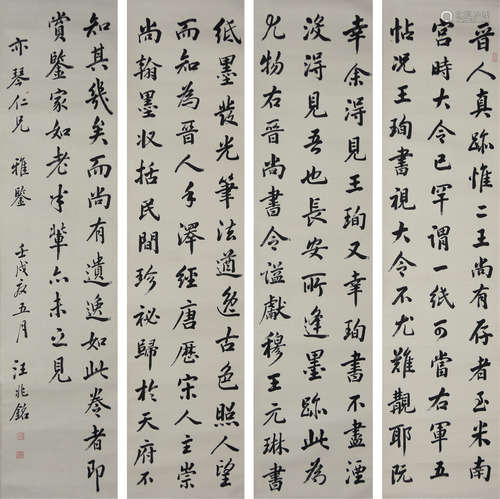 晋人真跡惟二王尚有存者至米南
宮時大令已罕謂一紙可當右軍五
帖况王珣書視大令不尤難覯耶既
幸余得見王珣又幸珣書不盡湮
沒得見吾也長安所逢墨跡此為
尤物右晉尚書令謚獻穆王元琳書
紙墨發光筆法遒逸古色照人望
而知為晉人手澤經唐歷宋人主崇
尚翰墨收括民間珍祕歸於天府不
知其幾矣而尚有遺逸如此卷者即
賞鑒家如老米輩亦未之見
亦琴仁兄 雅鑒 壬戌夏五月 汪兆銘